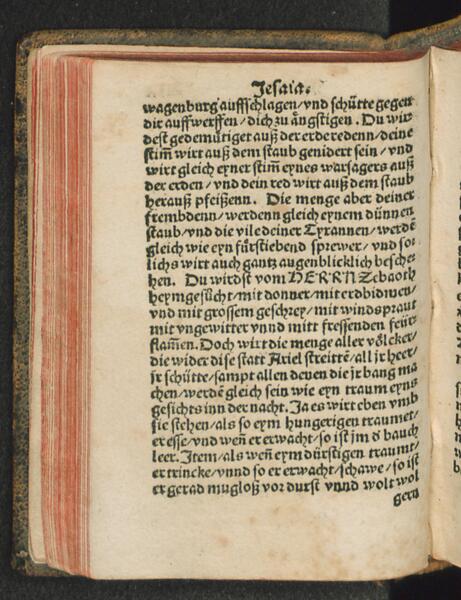 Jesaia.
wagenburg auffschlagen/vnd schütte gegen
dir auffwerffen/dich zu ängstigen. Du wir
dest gedemütiget auß der erde redenn/deine
stim̄ wirt auß dem staub genidert sein/vnd
wirt gleich eyner stim̄ eynes warsagers auß
der erden/vnd dein red wirt auß dem staub
herauß pfeißenn. Die menge aber deiner
frembdenn/werdenn gleich eynem dünnen
staub/vnd die vile deiner Tyrannen/werdē
gleich wie eyn fürstiebend sprewer/vnd sol
lichs wirt auch gantz augenblicklich besche
hen. Du wirdst vom HERRN Zebaoth
heymgesücht/mit donner/mit erdbidmen/
vnd mit grossem geschrey/mit windspraut
mit vngewitter vnnd mitt fressenden feür
flam̄en. Doch wirt die menge aller völcker/
die wider dise statt Ariel streittē/all jr heer/
jr schütte/sampt allen denen die jr bang ma
chen/werdē gleich sein wie eyn traum eyns
gesichts inn der nacht. Ja es wirt eben vmb
sie stehen/als so eym hungerigen traumet/
er esse/vnd wen̄ er erwacht/so ist jm d' bauch
leer. Item/als wen̄ eym dürstigen traumt/
er trincke/vnnd so er erwacht/schawe/so ist
er gerad mugloß vor durst vnnd wolt wol
gern